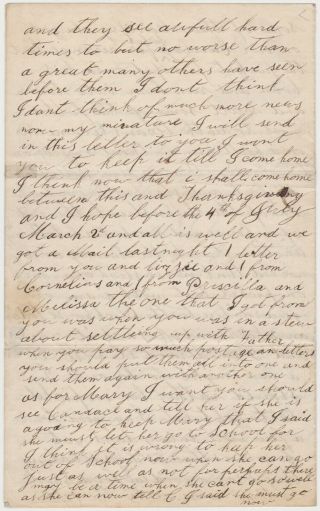 and they see awfull hard
times to but no worse than
a great many others have seen
before them I dont think
I dant think of much more news
now my minature I will send
in this letter to you I wont
you to keep it till I come home
I think now that i shall come home
between this and Thanksgiving
and I hope before the 4th of July
March 2d andall is well and we
got a Mail lastnight 1 letter
from you and and 1 from
Cornelius and 1 from Priscilla and
Melissa the one that I got from
you was when you was in a stew
about settleing up with Father
when you pay so much postage on letters
you should put them all into one and
send them again with another one
as for Marry I want you should
see Candace and tell her if she is
agoing to keep Mary that I said
she must let her go to School for
I think it is wrong to keep her
out of School now when she can go
Just as well as not for perhaps there
may be a time when she cant go so well
as she can now tell C I said she must go
now